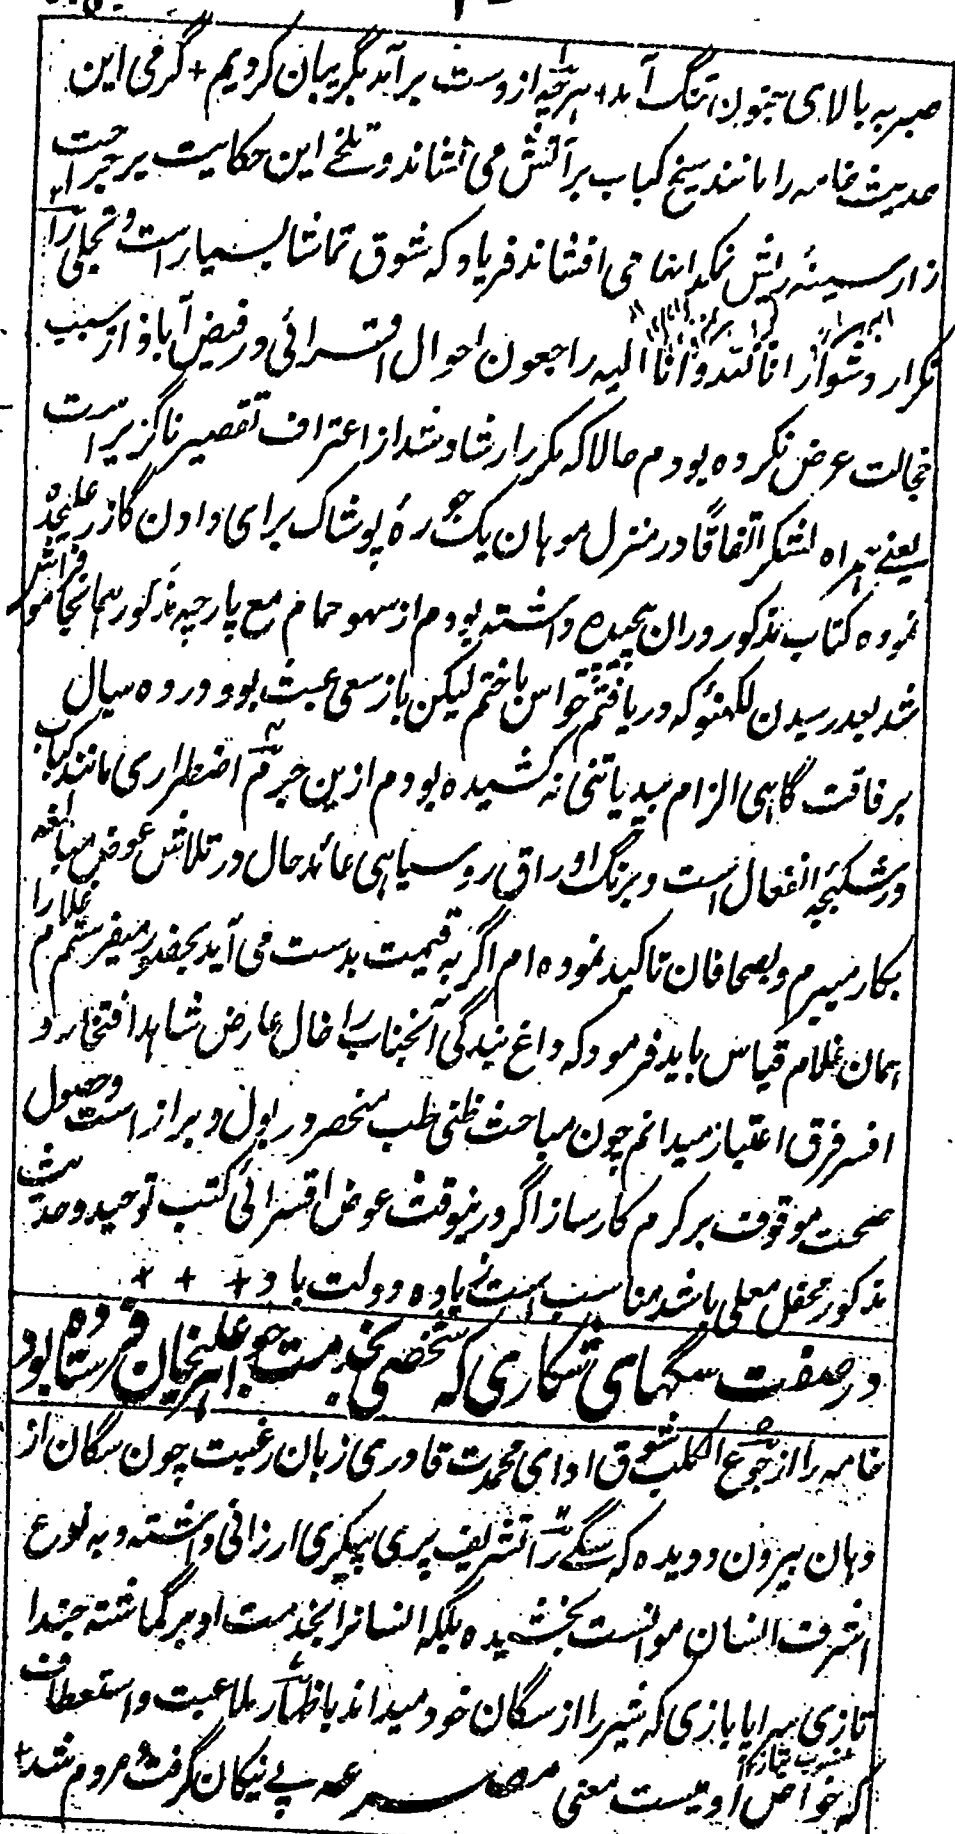 صبر به بالای جنون تنگ آمد + هرچه از دست برآمد بگریبان کردیم + گرمی این
حدیث خامه را مانند سیخ کباب بر آتش می نشاند و تلخی این حکایت بر جراحت
زار سینهٔ ریش نمکدانها می افشاند فریاد که شوق تماشا بسیار است و تجلی را
تکرار دشوار انا لله و انا الیه راجعون احوال اقسرائی در فیض آباد از سبب
خجالت عرض نکرده بودم حالا که مکرر ارشاد شد از اعتراف تقصیر ناگزیر است
یعنی همراه لشکر اتفاقاً در منزل موهان یک جوره پوشاک برای دادن گازر علیحده
نموده کتاب مذکور در آن پیچیده داشته بودم از سهو حمام مع پارچه مذکور همانجا فراموش
شد بعد رسیدن لکهنؤ که دریافتم حواس باختم لیکن باز سعی عبث بود و در ده سال
برفاقت گاهی الزام بیدیانتی نه کشیده بودم ازین جرم اضطراری مانند کتاب
در شکنجه انفعال است و برنگ اوراق رو سیاهی عائد حال در تلاش عوض مبالغه
بکار میبرم و بصحافان تاکید نموده ام اگر به قیمت بدست می آید بحضور میفرستم غلام را
همان غلام قیاس باید فرمود که داغ بندگی آنجناب را خال عارض شاهد افتخار و
افسر فرق اعتبار میدانم چون مباحث ظنی طب منحصر در بول و براز است و حصول
صحت موقوف بر کرم کارساز اگر درینوقت عوض اقسرائی کتب توحید و حدیث
مذکور محفل معلی باشد مناسب است زیاده دولت باد + + +
در صفت سگهای شکاری که شخصی بخدمت جو اهر علیخان فرستاده بود
خامه را از جوع الکلب شوق ادای محمدت قادری زبان رغبت چون سگان از
دهان بیرون دویده که سگی را تشریف پری پیکری ارزانی داشته و به نوع
اشرف انسان موانست بخشیده بلکه انسانرا بخدمت او برگماشته حبذا
تازی سراپا بازی که شیر را از سگان خود میداند باظهار ملاعبت و استعطاف
که خواص اوست معنی مصرعه پی نیکان گرفت مردم شد +